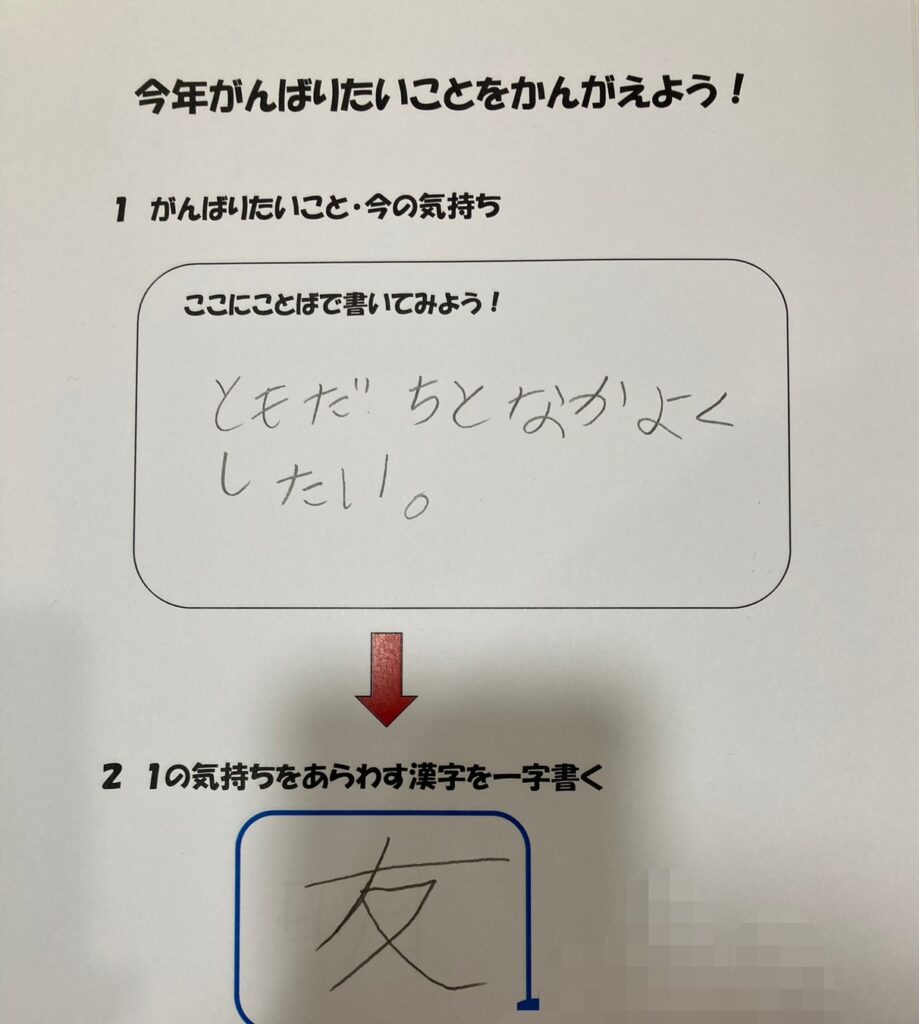 今年がんばりたいことをかんがえよう！
1 がんばりたいこと・今の気持ち
ここにことばで書いてみよう！
ともだちとなかよく
したい。
2 1の気持ちをあらわす漢字を一字書く
友